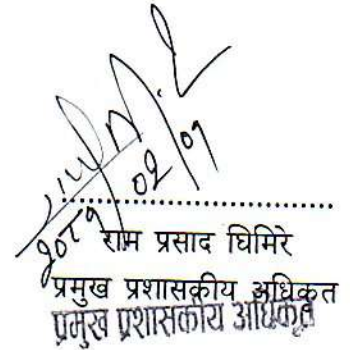 २०८१ ०२/०१
राम प्रसाद घिमिरे
प्रमुख प्रशासकीय अधिकृत
प्रमुख प्रशासकीय अधिकृत